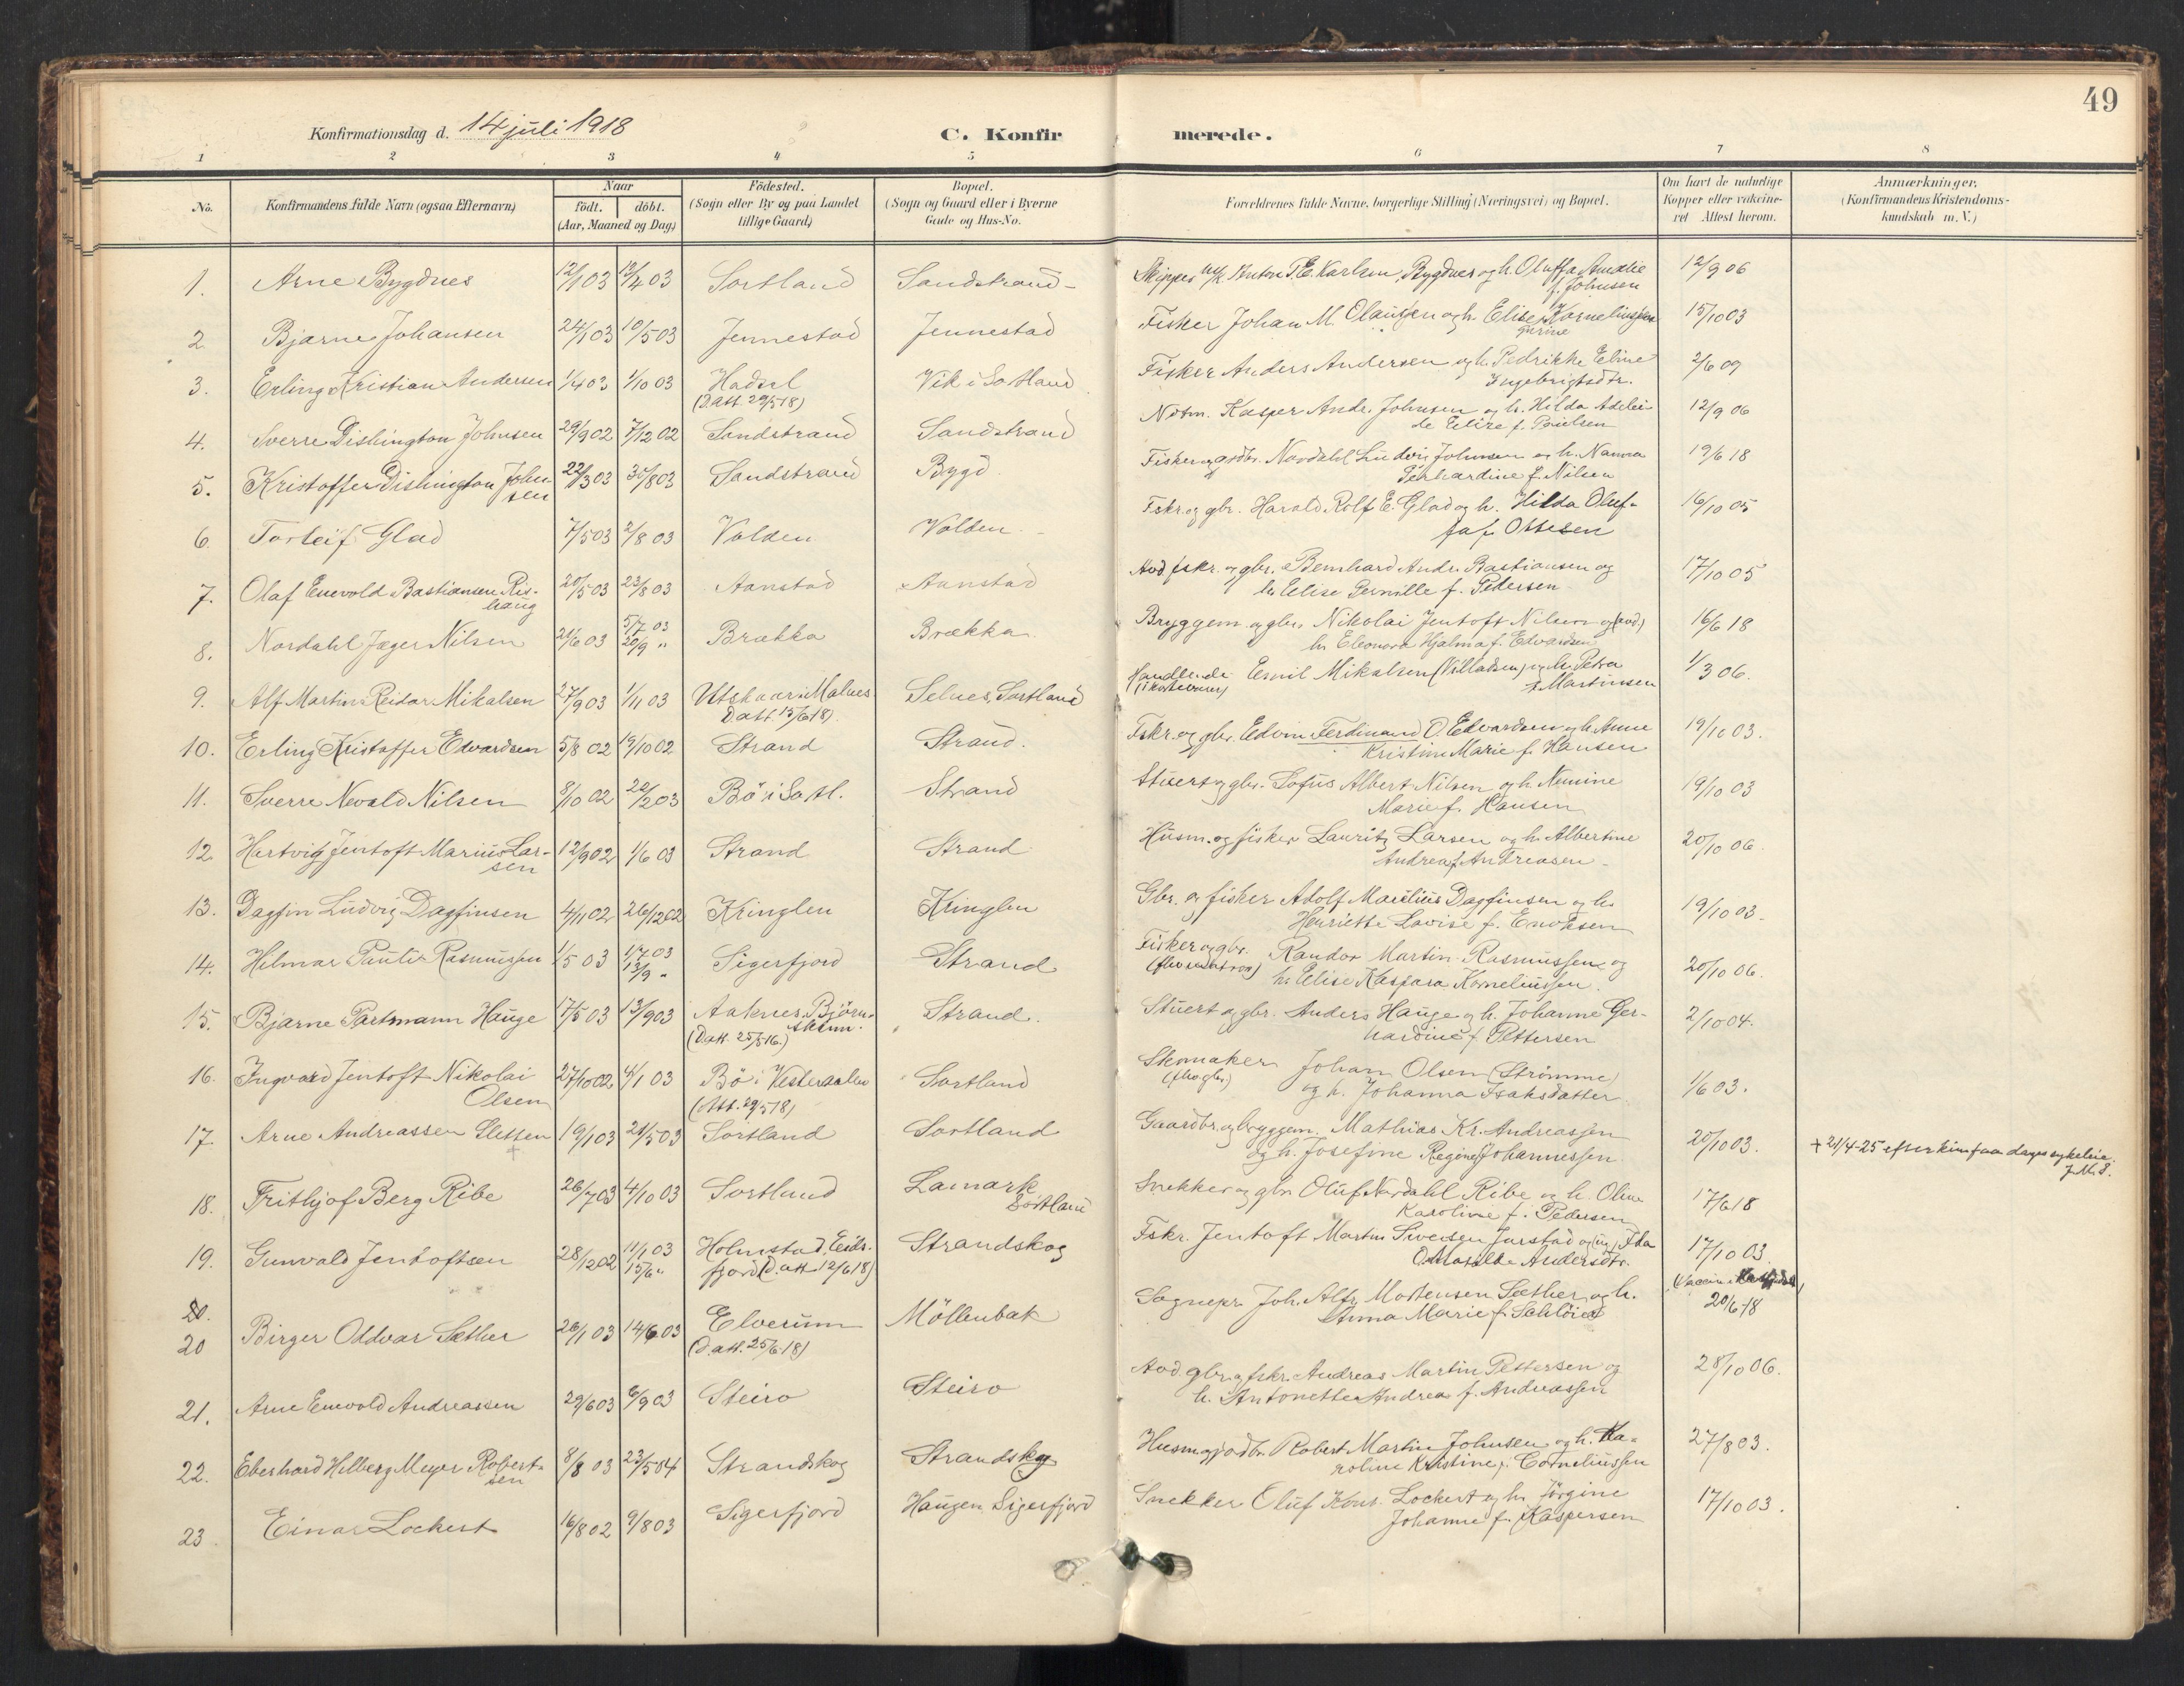 49
Konfirmationsdag d. 14 juli 1918
C. Konfirmerede.
1 2 3 4 5 6 7 8
No.
Konfirmandens fulde Navn (ogsaa Efternavn)
Naar
födt. döbt.
(Aar, Maaned og Dag)
Födested.
(Sogn eller By og paa Landet
tillige Gaard)
Bopæl.
(Sogn og Gaard eller i Byerne
Gade og Hus-No.
Forældrenes fulde Navne, borgerlige Stilling (Næringsvei) og Bopæl.
Om havt de naturlige
Kopper eller vakcine-
ret Attest herom.
Anmærkninger.
(Konfirmandens Kristendoms-
kundskab m. V.)
1. Arne Bygdnes 12/1 03 13/4 03 Sortland Sandstrand Skipper Anton T. E. Karlsen, Bygdnes og h. Oluffa Amalie 12/9 06
f. Johnsen
2. Bjarne Johansen 24/1 03 10/5 03 Jennestad Jennestad Fisker Johan M. Olaussen og h. Elise Korneliussen 15/10 03
Gurine
3. Erling Kristian Andersen 1/4 03 1/10 03 Hadsel Vik i Sortland Fisker Anders Andersen og h. Pedrikke Eline 2/6 09
(D. att. 29/5 18) Ingebrigtsdtr.
4. Sverre Dishington Johnsen 29/9 02 7/12 02 Sandstrand Sandstrand Notm. Kasper Andr. Johnsen og h. Hilda Adelei- 12/9 06
de Elise f. Paulsen
5. Kristoffer Dishington John- 22/3 03 30/8 03 Sandstrand Bygd Fisker og gardbr. Nordahl Ludvig Johnsen og h. Nanna 19/6 18
sen Gerhardine f. Nilsen
6. Torleif Glad 7/5 03 2/8 03 Valden Valden Fskr. og gbr. Harald Rolf E. Glad og h. Hilda Oluf- 16/10 05
fa f. Ottesen
7. Olaf Enevold Bastiansen Ris- 20/5 03 23/8 03 Aanstad Aanstad Avd. fskr. og gbr. Bernhard Andr. Bastiansen og 17/10 05
haug h. Elise Pernille f. Pedersen
8. Nordahl Jæger Nilsen 21/6 03 5/7 03 Brækka Brækka Bryggem. og gbr. Nikolai Jentoft Nilsen og (avd) 16/6 18
20/9 " h. Eleonora Hjalma f. Edvardsen
9. Alf Martin Reidar Mikalsen 27/9 03 1/11 03 Utskaar i Malnes Selnes, Sortland Handlende Emil Mikalsen (Villadsen) og h. Petra 1/3 06.
D att. 15/6 18). f. Martinsen
10. Erling Kristoffer Edvardsen 5/8 02 19/10 02 Strand Strand. Fskr. og gbr. Edvin Ferdinand O. Edvardsen og h. Anne 19/10 03.
Kristine Marie f. Hansen
11. Sverre Nevald Nilsen 8/10 02 22/2 03 Bö i Sortl. Strand Stuert og gbr. Sofus Albert Nilsen og h. Nemine 19/10 03
Marie f. Hansen
12. Hartvig Jentoft Marius Lar- 12/9 02 1/6 03 Strand Strand Husm. og fisker Lauritz Larsen og h. Albertine 20/10 06
sen Andrea f. Andreasen
13. Dagfin Ludvig Dagfinsen 4/11 02 26/12 02 Kringlen Kringlen Gbr. og fisker Adolf Marelius Dagfinsen og h. 19/10 03
Henriette Lovise f. Enoksen
14. Hilmar Paulus Rasmussen 1/5 03 1/7 03 Sigerfjord Strand Fisker og gbr. Randor Martin Rasmussen og 20/10 06.
13/9 " h. Elise Kaspara Korneliussen.
15. Bjarne Partmann Hauge 17/5 03 13/9 03 Aaknes, Björn- Strand. Stuert og gbr. Anders Hauge og h. Johanne Ger- 2/10 04.
skinn.
(D. att. 25/5 16.) hardine f. Pettersen
16. Ingvard Jentoft Nikolai 27/10 02 4/1 03 Bö i Vesteraalen Sortland Skomaker Johan Olsen (Strömme) 1/6 03.
Olsen (Att. 29/5 18) og h. Johanna Isaksdatter
17. Arne Andreassen Sletten 19/1 03 21/5 03 Sortland Sortland Gaardbr. og bryggem. Mathias Kr. Andreassen 20/10 03. + 21/4-25 efter kun faa dages sykeleie.
og h. Josefine Regine Johannessen
18. Frithjof Berg Ribe 26/7 03 4/10 03 Sortland Lamark Snekker og gbr. Oluf Nordahl Ribe og h. Oline 17/6 18
Sortland Karoline f. Pedersen
19. Gunvald Jentoftsen 28/12 02 11/1 03 Holmstad, Eids- Strandskog Fskr. Jentoft Martin Sivertsen Jarstad og (ug.) Ida 17/10 03.
15/6 " fjord (D. att 12/6 18) O. Matilde Andersdtr.
20 Birger Oddvar Sæther 26/1 03 14/6 03 Elverum Möllenbak Sognepr. Joh. Alfr. Mortensen Sæther og h. 20/6 18
(D. att. 25/6 18) Anna Marie f. Schlöier
21. Arne Enevold Andreassen 29/6 03 6/9 03 Steiro Steiro Avd. gbr. og fskr. Andreas Martin Pettersen og 28/10 06.
h. Antonette Andrea f. Andreassen
22. Eberhard Hilberg Meyer Robert- 8/8 03 23/5 04 Strandskog Strandskog Husm. og jordbr. Robert Martin Johnsen og h. Ka- 27/8 03.
sen roline Kristine f. Corneliussen
23 Einar Lockert 16/8 02 9/8 03 Sigerfjord Haugen, Sigerfjord Snekker Oluf Kons. Lockert og h. Jörgine 17/10 03.
Johanne f. Kaspersen